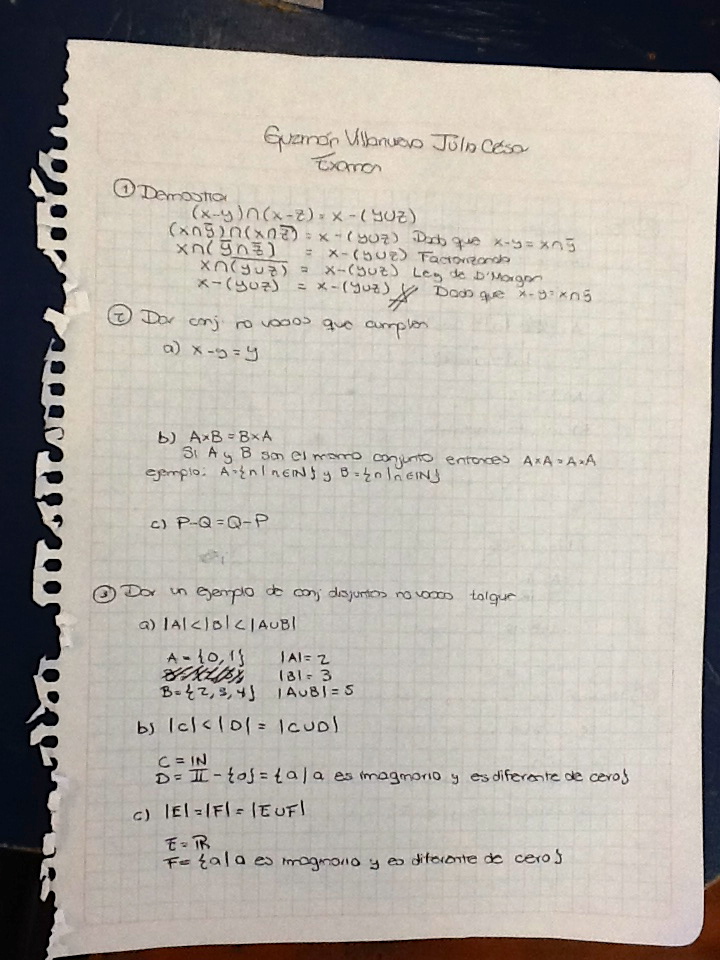 Guzmán Villanueva Julio César
Examen
① Demostrar
(x-y)∩(x-z) = x-(y∪z)
(x∩ȳ)∩(x∩z̄) = x-(y∪z) Dado que x-y = x∩ȳ
x∩(ȳ∩z̄) = x-(y∪z) Factorizando
x∩(y∪z)̅ = x-(y∪z) Ley de D'Morgan
x-(y∪z) = x-(y∪z) Dado que x-y = x∩ȳ
② Dar conj no vacios que cumplen
a) x-y = y
b) A×B = B×A
Si A y B son el mismo conjunto entonces A×A = A×A
ejemplo: A={n|n∈IN} y B={n|n∈IN}
c) P-Q = Q-P
③ Dar un ejemplo de conj disjuntos no vacios tal que
a) |A|<|B|<|A∪B|
A = {0,1} |A| = 2
|B| = 3
B = {2,3,4} |A∪B| = 5
b) |C|<|D| = |C∪D|
C = IN
D = II - {0} = {a|a es imaginario y es diferente de cero}
c) |E| = |F| = |E∪F|
E = IR
F = {a|a es imaginario y es diferente de cero}